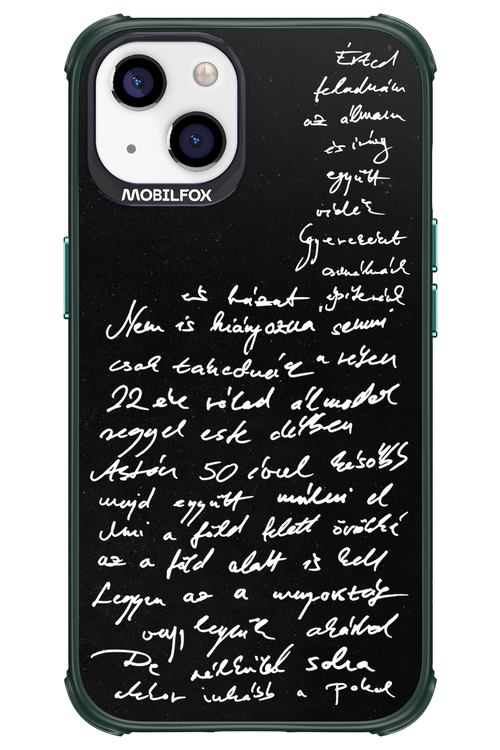 MOBILFOX
Érted
feladnám
az álmaim
és így
együtt
Gyerekeint
csinálnánk
és házat építenénk
Nem is hiányozna semmi
csak takednék a
22 éve rólad álmodok
reggel este délben
Aztán 50 évvel később
majd együtt múlni el
Ami a föld felett örökké
az a föld alatt is kell
Legyen az a mennyország
vagy legyünk akárhol
De nélküled soha
akkor inkább a Pokol